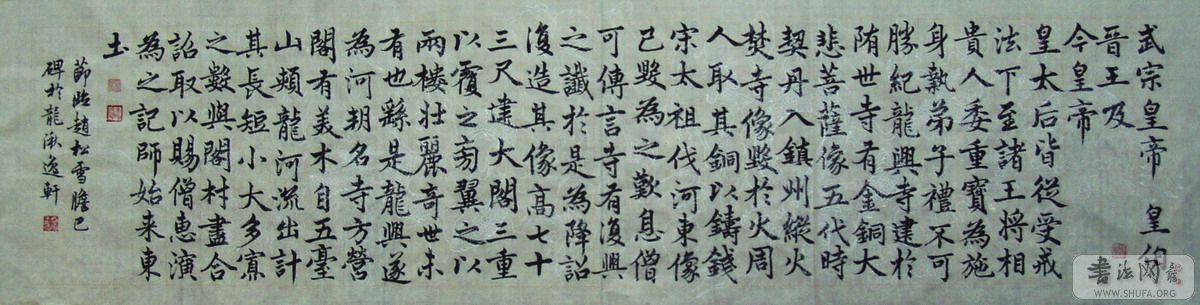 武宗皇帝 皇伯
晋王及
今皇帝
皇太后皆從受戒
法下至諸王将相
貴人委重寶為施
身執弟子禮不可
勝紀龍興寺建於
隋世寺有金銅大
悲菩薩像五代時
契丹入鎮州縱火
焚寺像毀於火周
人取其銅以鑄錢
宋太祖伐河東像
已毀為之歎息僧
可傳言寺有復興
之讖於是為降詔
復造其像高七十
三尺建大閣三重
以覆之旁翼之以
兩樓壯麗奇世未
有也繇是龍興遂
為河朔名寺方營
閣有美木自五臺
山頰龍河流出計
其長短小大多寡
之數與閣材盡合
詔取以賜僧惠演
為之記師始来東
土
節臨趙松雪膽巴
碑於龍湫逸軒
書法网
WWW.SHUFA.ORG